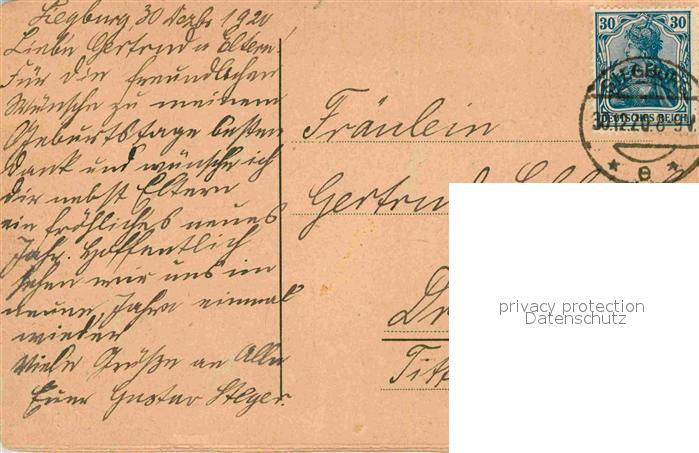 Siegburg 30 Dezbr 1920
Liebe Gertrud u Eltern!
Für die freundlichen
Wünsche zu meinem
Geburtstage besten
Dank und wünsche ich
dir nebst Eltern
ein fröhliches neues
Jahr. Hoffentlich
sehen wir uns im
neuen Jahre einmal
wieder
Viele Grüße an Alle
Euer Gustav Steger.
30 30
DEUTSCHES REICH
SIEGBURG
30.12.20. 8-9V
* e *
Fräulein
Gertrud
privacy protection
Datenschutz